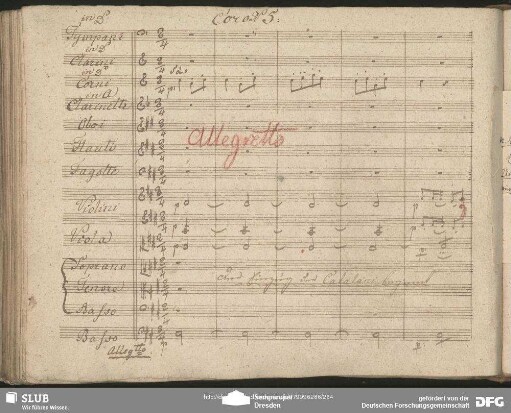 in D
Coro N 5.
Tympani
in D
Clarini
in D
Corni
Solo
in A
Clarinetti
Oboi
Allegretto
Flauti
Fagotti
Violini
Viola
Soprano
Tenore
Basso
Basso
Allegtto
SLUB
Wir führen Wissen.
Dresden
gefördert von der
Deutschen Forschungsgemeinschaft
DFG